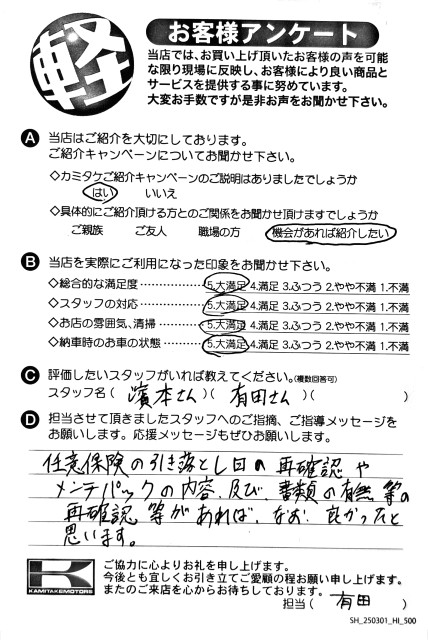 軽
お客様アンケート
当店では、お買い上げ頂いたお客様の声を可能
な限り現場に反映し、お客様により良い商品と
サービスを提供する事に努めています。
大変お手数ですが是非お声をお聞かせ下さい。
A 当店はご紹介を大切にしております。
ご紹介キャンペーンについてお聞かせ下さい。
◇カミタケご紹介キャンペーンのご説明はありましたでしょうか
はい いいえ
◇具体的にご紹介頂ける方とのご関係をお聞かせ頂けますでしょうか
ご親族 ご友人 職場の方 機会があれば紹介したい
B 当店を実際にご利用になった印象をお聞かせ下さい。
◇総合的な満足度………………5.大満足 4.満足 3.ふつう 2.やや不満 1.不満
◇スタッフの対応………………5.大満足 4.満足 3.ふつう 2.やや不満 1.不満
◇お店の雰囲気、清掃…………5.大満足 4.満足 3.ふつう 2.やや不満 1.不満
◇納車時のお車の状態…………5.大満足 4.満足 3.ふつう 2.やや不満 1.不満
C 評価したいスタッフがいれば教えてください。(複数回答可)
スタッフ名( 濱本さん )( 有田さん )( )
D 担当させて頂きましたスタッフへのご指摘、ご指導メッセージを
お願いします。応援メッセージもぜひお願いします。
任意保険の引き落とし日の再確認や
メンテパックの内容、及び、書類の有無等の
再確認等があれば、なお、良かったと
思います。
K
KAMITAKEMOTORS
ご協力に心よりお礼を申し上げます。
今後とも宜しくお引き立てご愛顧の程お願い申し上げます。
またのご来店を心からお待ちしております。
担当( 有田 )
SH_250301_HI_500